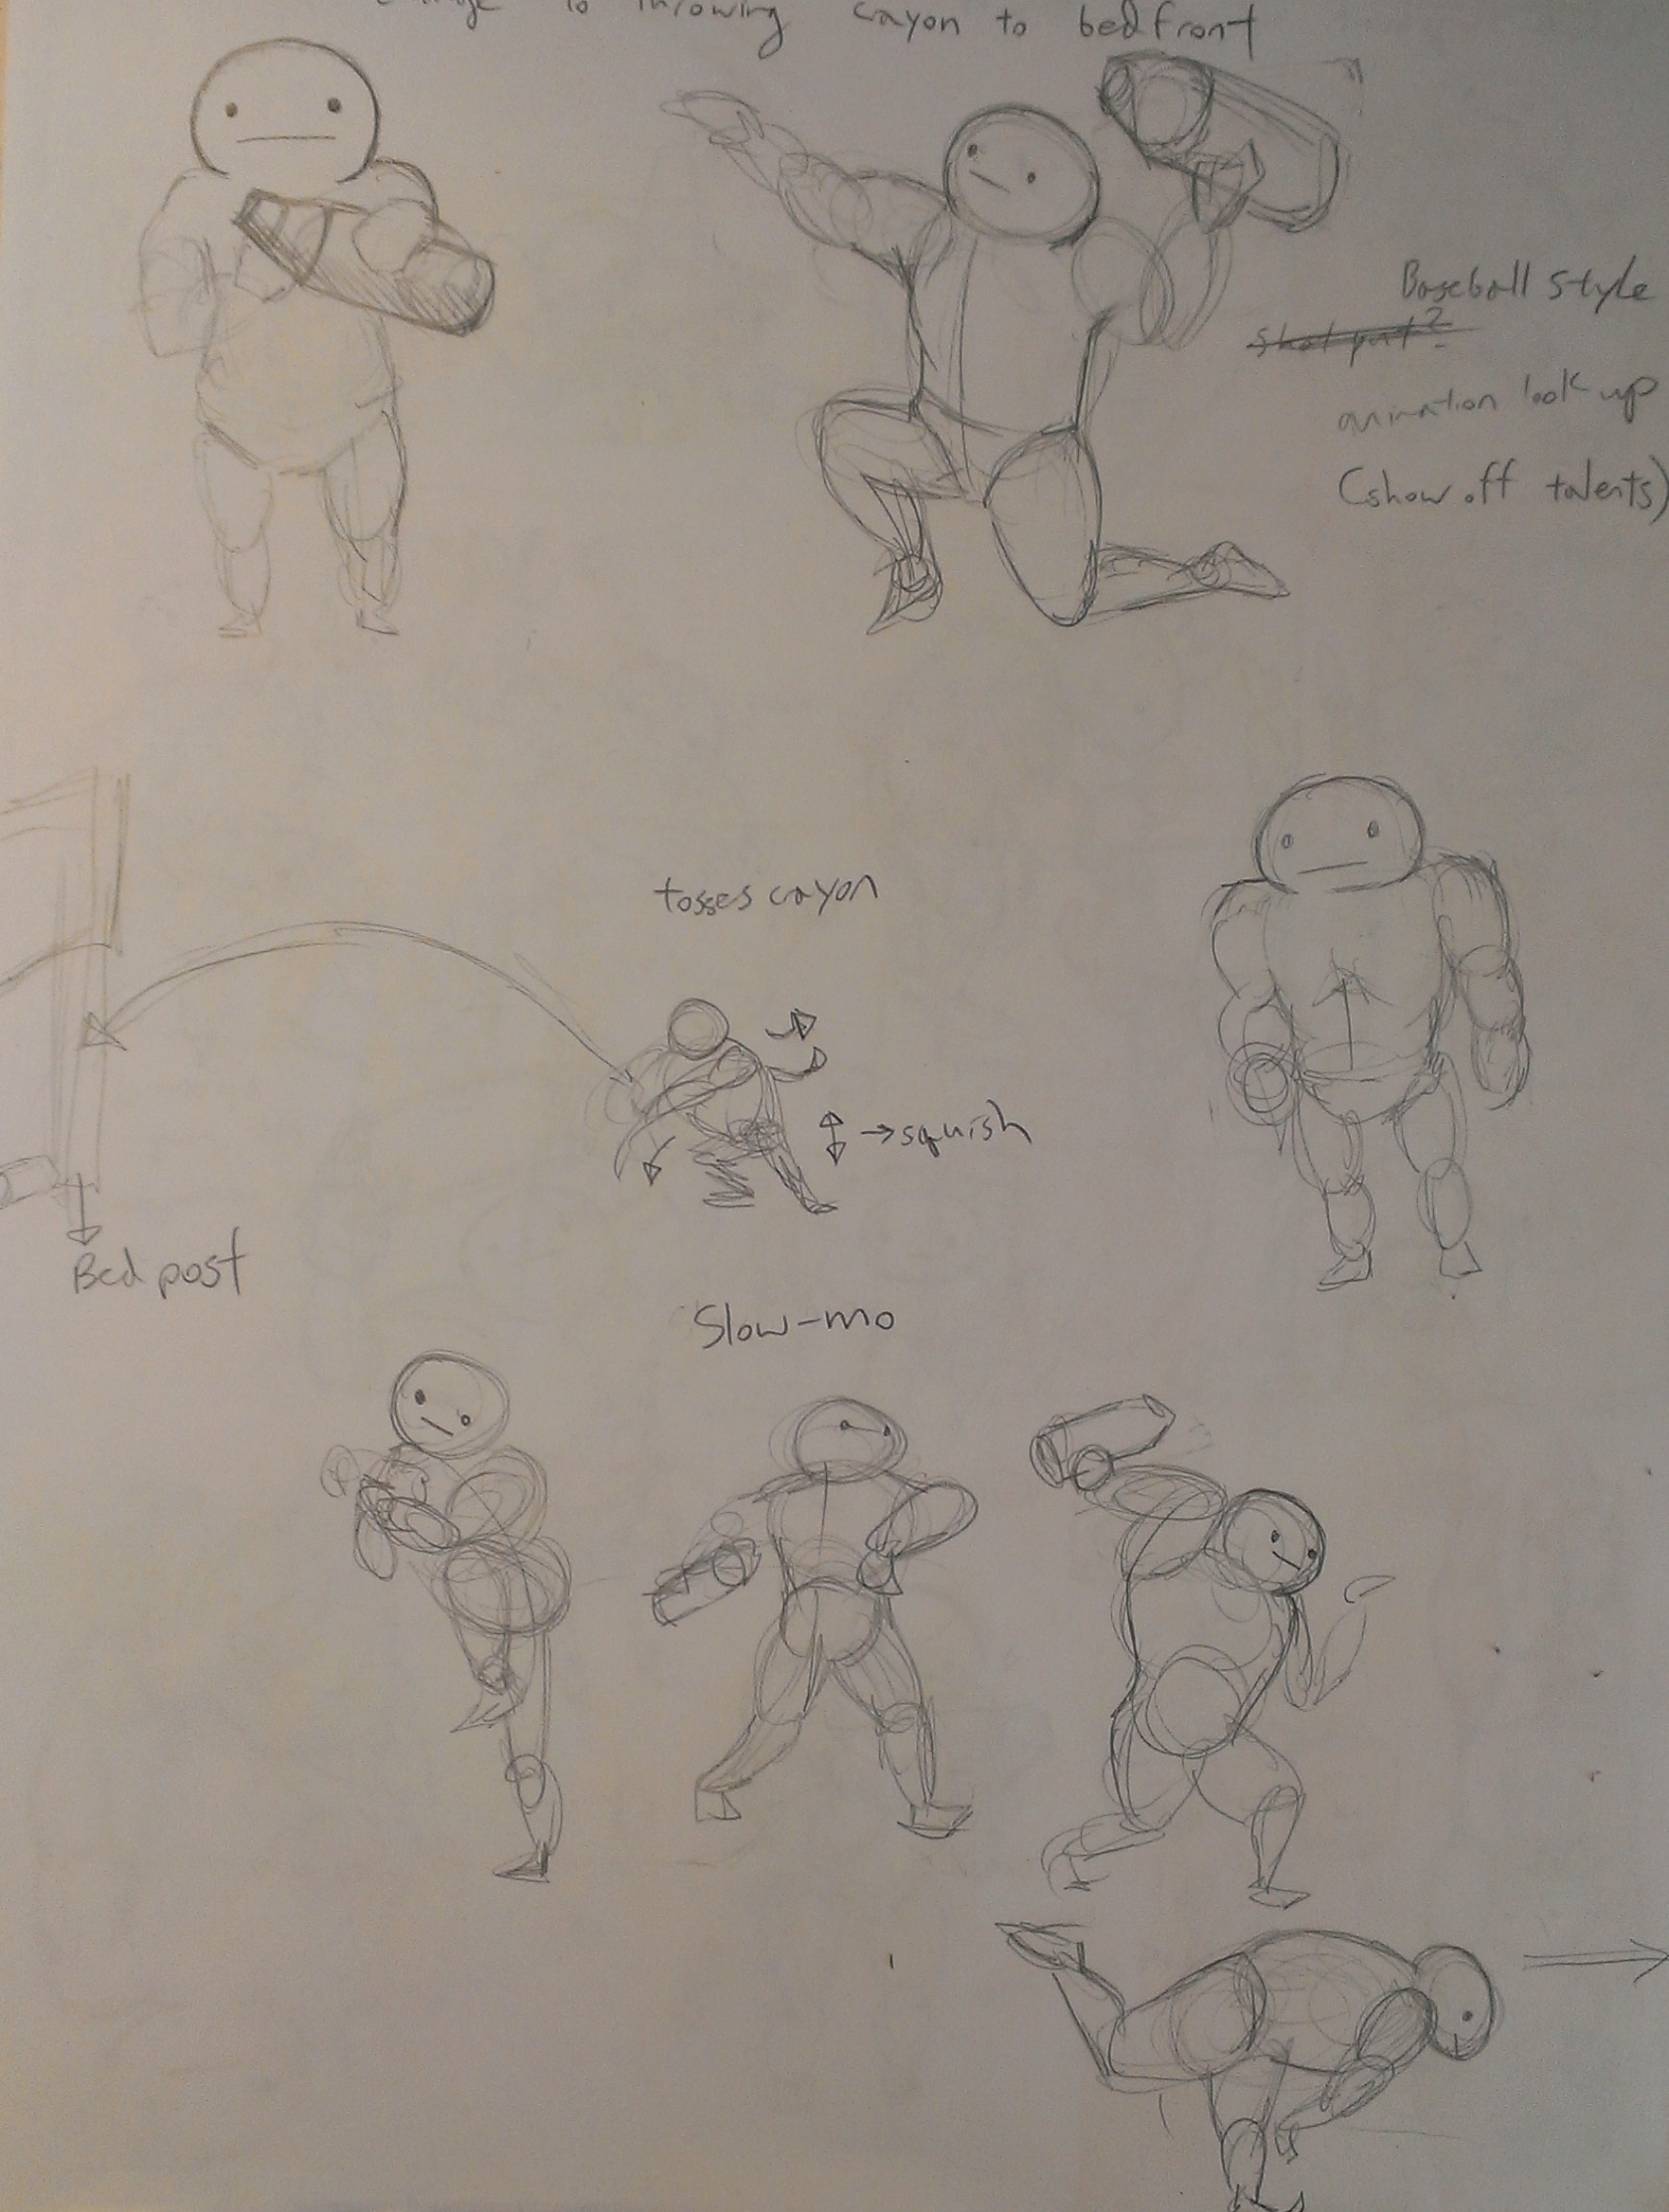 to throwing crayon to bedfront
Baseball style
shot put?
animation look up
(show off talents)
tosses crayon
squish
Bed post
Slow-mo